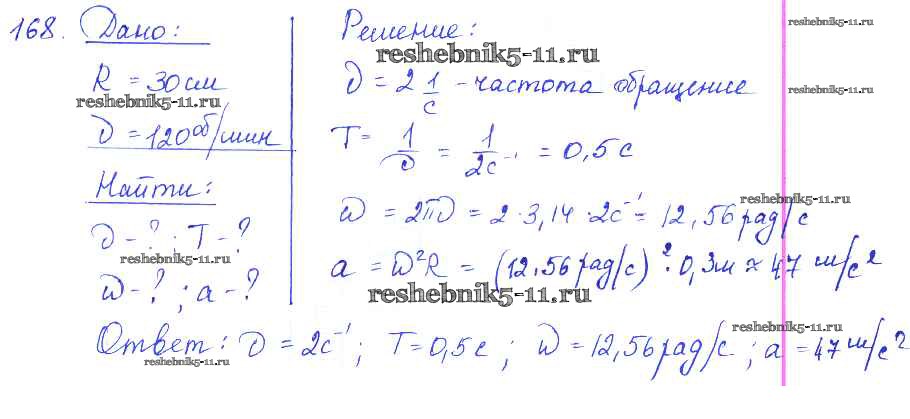 168. Дано:
R = 30 см
ν = 120 об/мин
Найти:
ν - ? ; T - ?
ω - ? ; a - ?
Решение:
ν = 2 1/с - частота обращение
T = 1/ν = 1/2с⁻¹ = 0,5 с
ω = 2πν = 2 · 3,14 · 2с⁻¹ = 12,56 рад/с
a = ω²R = (12,56 рад/с)² · 0,3м ≈ 47 м/с²
Ответ: ν = 2с⁻¹; T = 0,5 с; ω = 12,56 рад/с; a = 47 м/с²
reshebnik5-11.ru
reshebnik5-11.ru
reshebnik5-11.ru
reshebnik5-11.ru
reshebnik5-11.ru
reshebnik5-11.ru
reshebnik5-11.ru
reshebnik5-11.ru
reshebnik5-11.ru